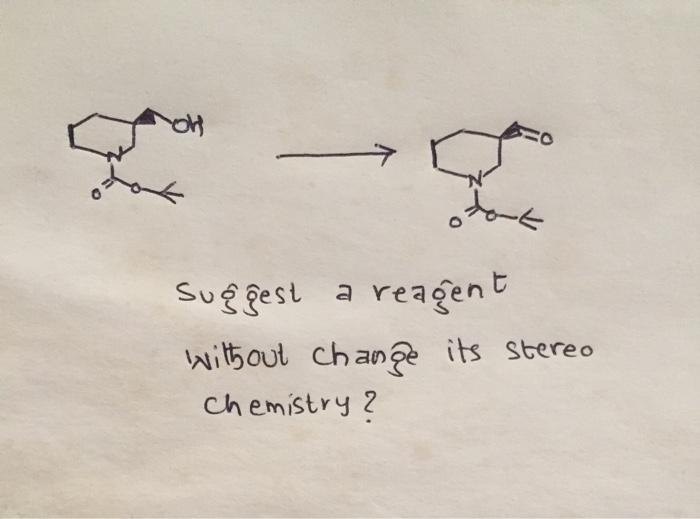 OH
N
O
O
O
N
O
O
Suggest a reagent
without change its stereo
chemistry?